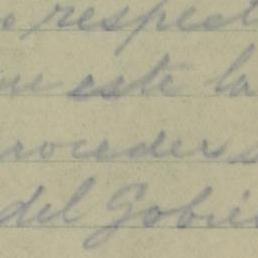 respect
este la
roceder
del Gobie